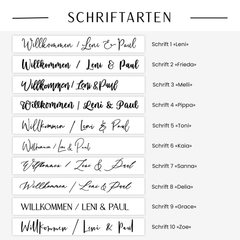 SCHRIFTARTEN
Willkommen / Leni & Paul Schrift 1 «Leni»
Willkommen / Leni & Paul Schrift 2 «Frieda»
Willkommen / Leni & Paul Schrift 3 «Melli»
Willkommen / Leni & Paul Schrift 4 «Pippa»
Willkommen / Leni & Paul Schrift 5 «Toni»
Willkommen / Leni & Paul Schrift 6 «Kaia»
Willkommen / Leni & Paul Schrift 7 «Sanna»
Willkommen / Leni & Paul Schrift 8 «Delia»
WILLKOMMEN / LENI & PAUL Schrift 9 «Grace»
Willkommen / Leni & Paul Schrift 10 «Zoe»